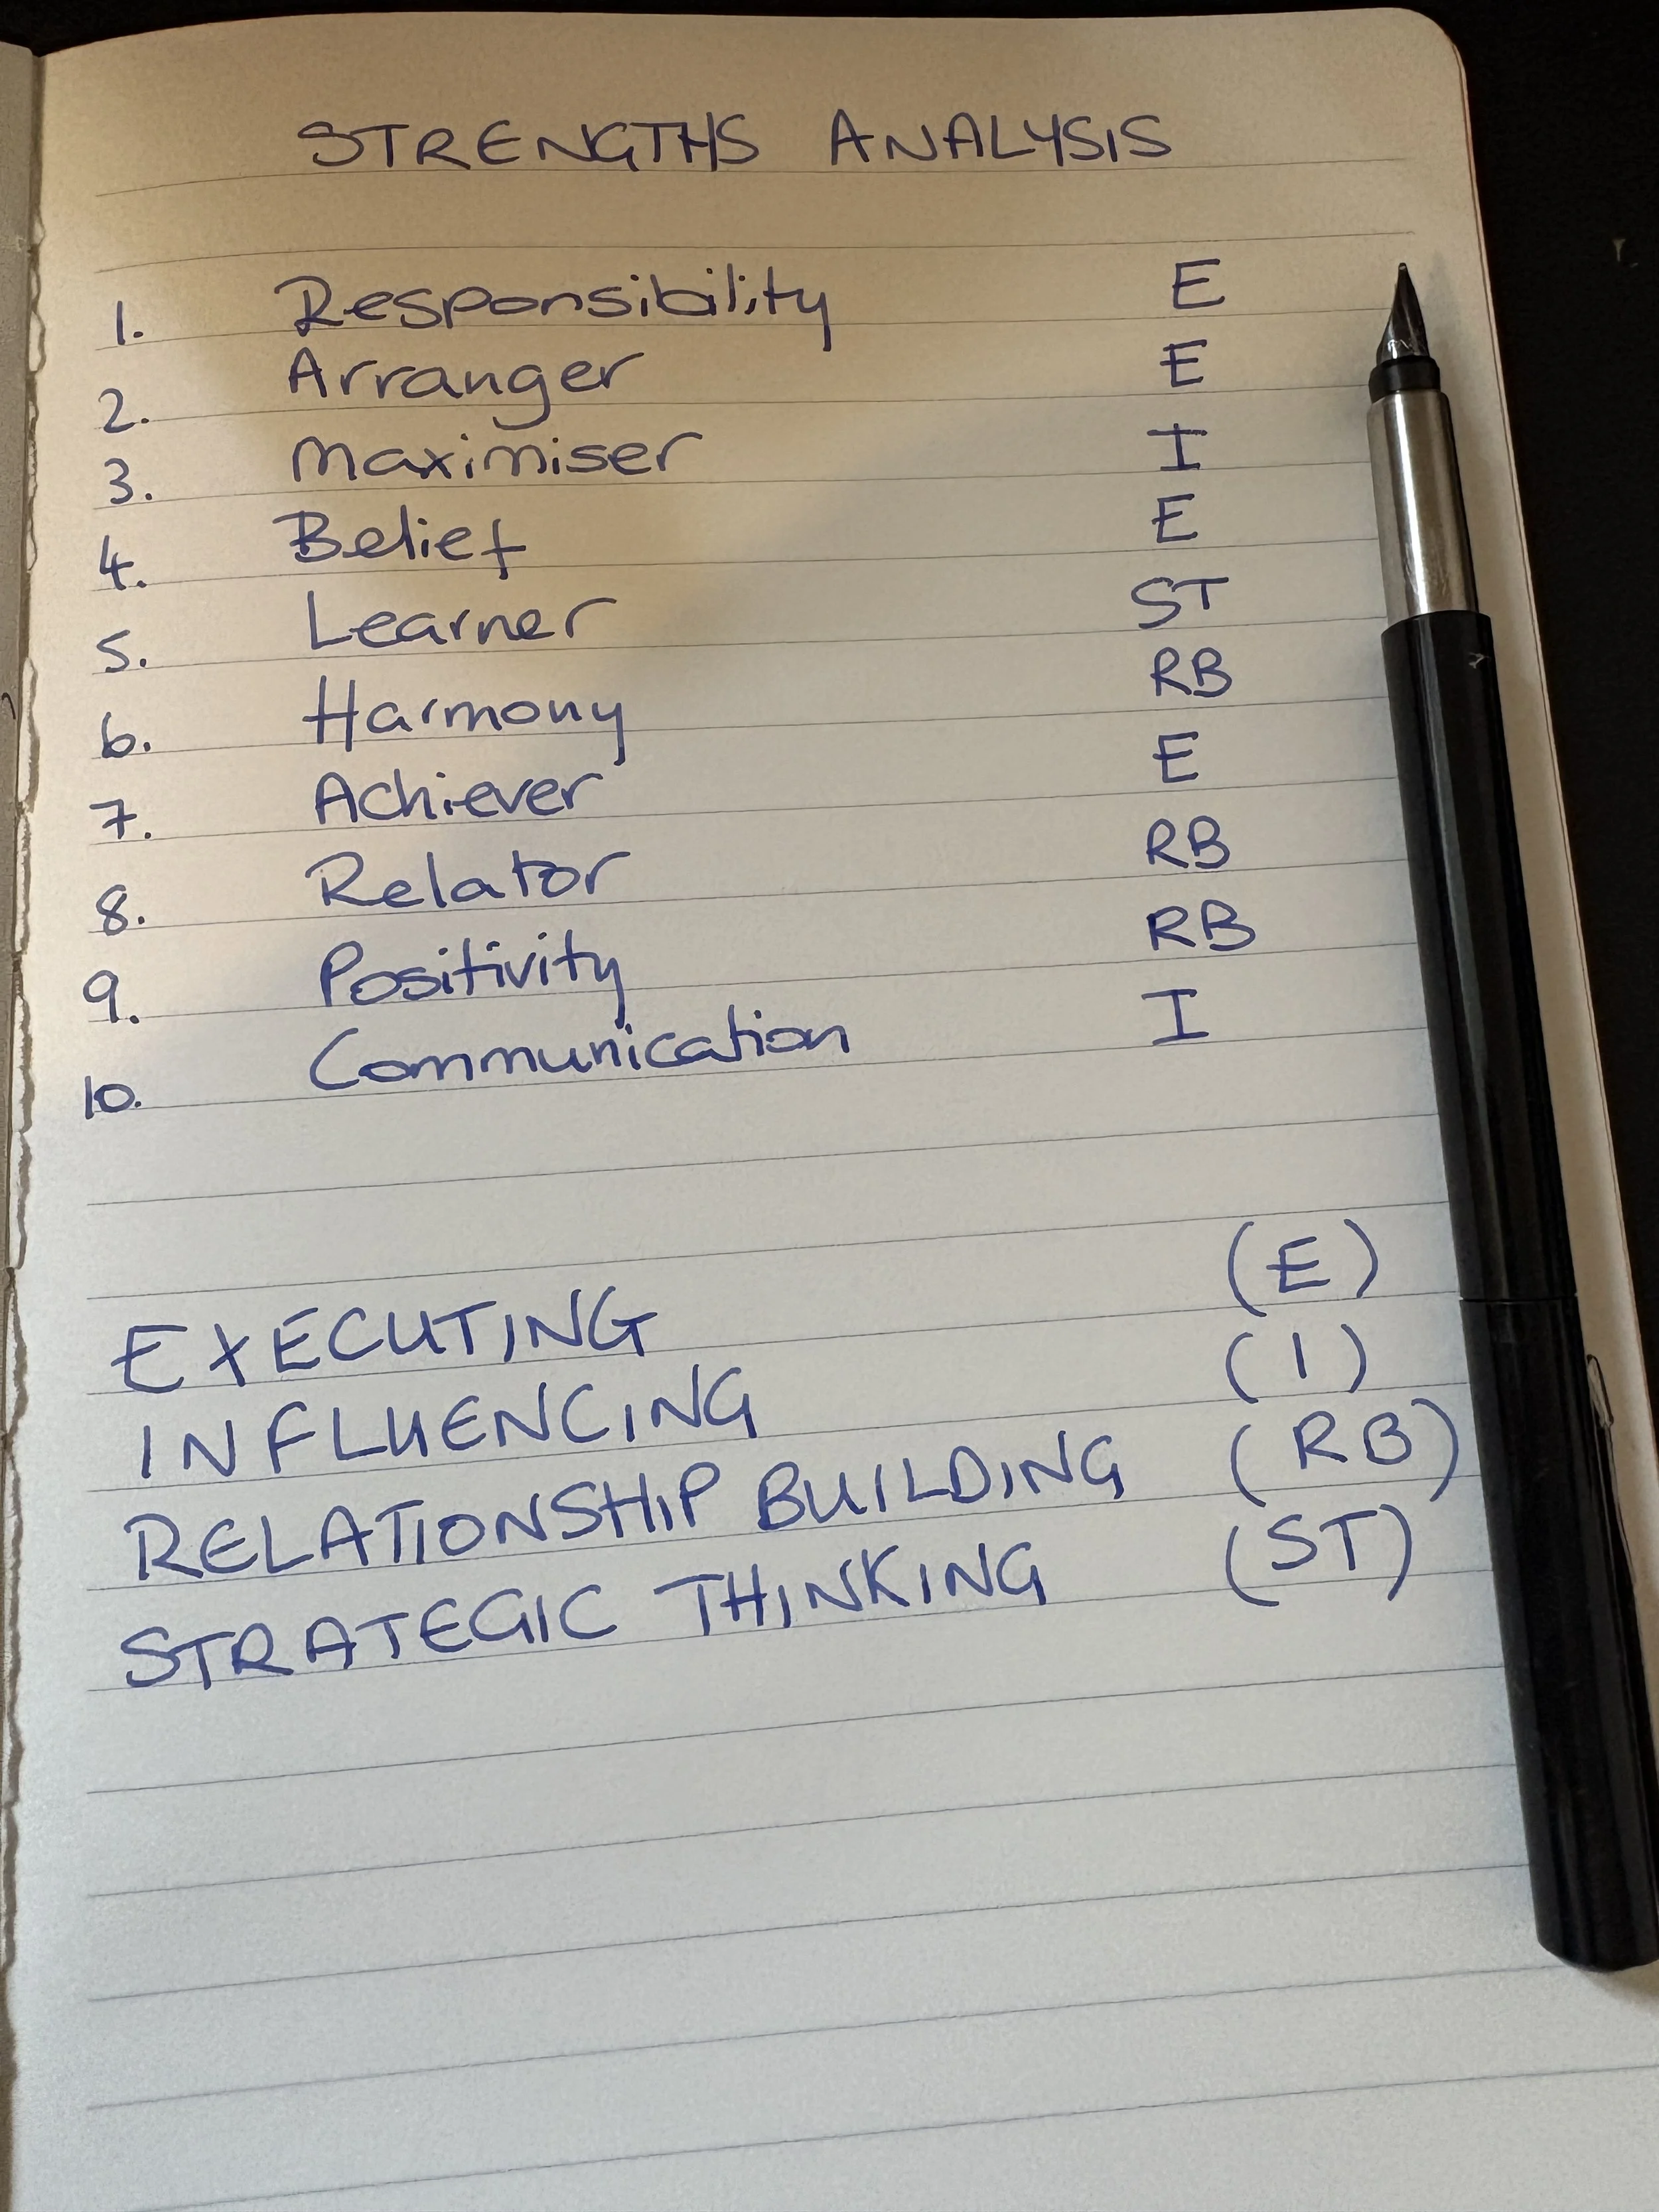 STRENGTHS ANALYSIS
1. Responsibility E
2. Arranger E
3. Maximiser I
4. Belief E
5. Learner ST
6. Harmony RB
7. Achiever E
8. Relator RB
9. Positivity RB
10. Communication I
EXECUTING (E)
INFLUENCING (I)
RELATIONSHIP BUILDING (RB)
STRATEGIC THINKING (ST)